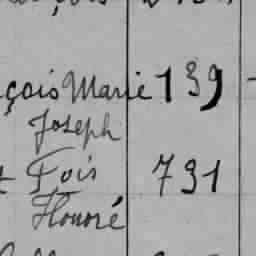 çois Marie 139
Joseph
t Fois 731
Honoré